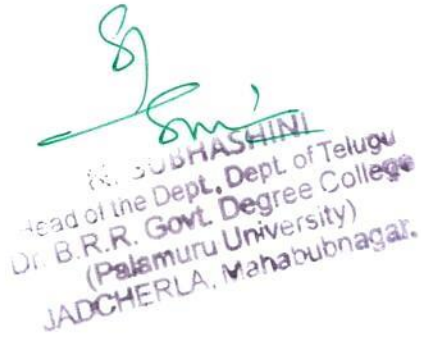 N. SUBHASHINI
Head of the Dept, Dept. of Telugu
Dr. B.R.R. Govt. Degree College
(Palamuru University)
JADCHERLA, Mahabubnagar.